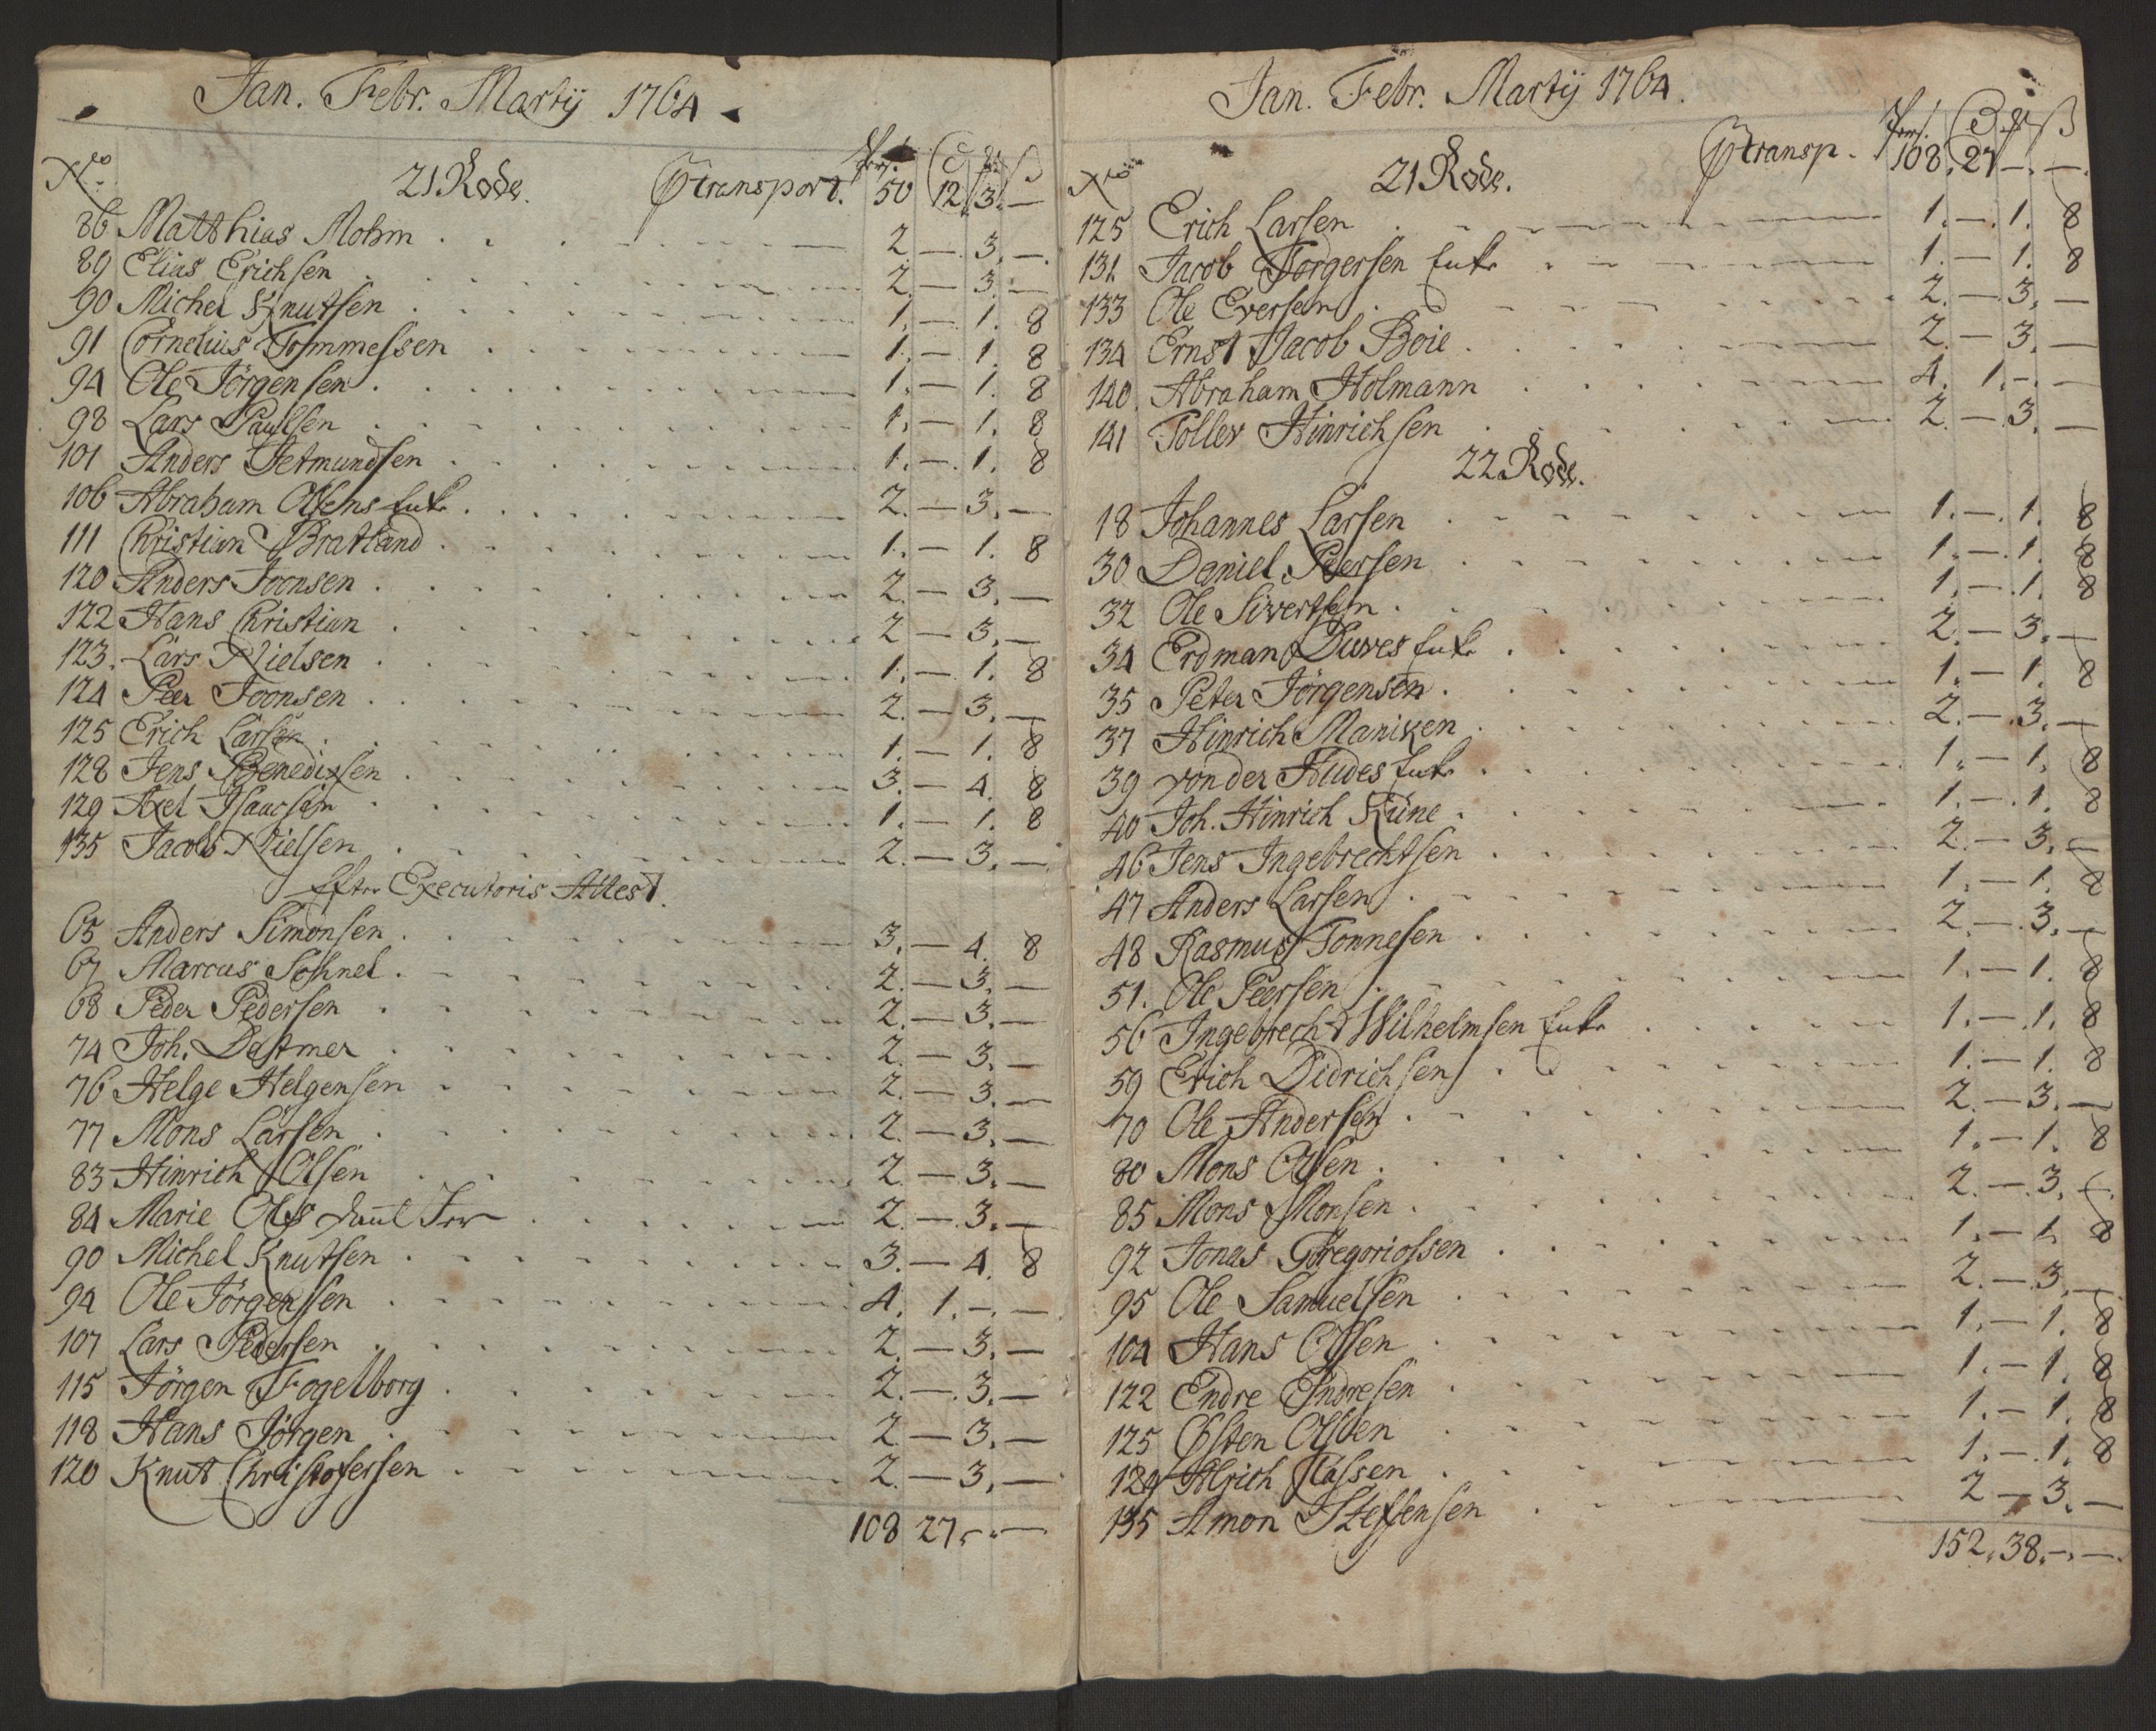 Jan. Febr. Martij 1764
No. 21 Rode. transport. Pers. 50 12 3. —
86 Matthias Mohm 2. — 3. —
89 Elias Erichsen 2. — 3. —
90 Michel Knutsen 1. — 1. 8
91 Cornelius Tommessen 1. — 1. 8
94 Ole Jörgensen 1. — 1. 8
98 Lars Paulsen 1. — 1. 8
101 Anders Jetmundsen 1. — 1. 8
106 Abraham Olsens Enke 2. — 3. —
111 Christian Bratland 1. — 1. 8
120 Anders Joonsen 2. — 3. —
122 Hans Christian 2 — 3. —
123. Lars Nielsen 1. — 1. 8
124 Peer Joonsen 2. — 3. —
125 Erich Larsen 1. — 1. 8
128 Jens Benedixsen 3. — 4. 8
129 Axel Isaacsen 1. — 1. 8
135 Jacob Nielsen 2. — 3. —
Efter Executoris Attest.
65 Anders Simonsen 3. — 4. 8
67 Marcus Sohnel 2. — 3. —
68 Peder Pedersen 2. — 3. —
74 Joh. Dastmer 2. — 3. —
76 Helge Helgensen 2. — 3. —
77 Mons Larsen 2. — 3. —
83 Hinrich Olsen 2. — 3. —
84 Marie Ols 2. — 3. —
90 Michel Knutsen 3. — 4. 8
94 Ole Jörgensen 4. 1. — —
107 Lars Pedersen 2. — 3. —
115 Jörgen Fogelborg 2. — 3. —
118 Hans Jörgen 2 — 3. —
120 Knut Christofersen 2. — 3. —
108 27. — —
Jan. Febr. Martij 1764.
No. 21 Rode. transp. Pers. 108. 27 — —
125 Erich Larsen 1. — 1. 8
131 Jacob Torgersen Enke 1. — 1. 8
133 Ole Eversen 2. — 3. —
134 Ernst Jacob Boie 2. — 3. —
140. Abraham Holmann 4. 1. — —
141 Toller Hinrichsen 2. — 3. —
22 Rode.
18 Johannes Larsen 1. — 1. 8
30 Daniel Peersen 1. — 1. 8
32 Ole Sivertsen 1. — 1. 8
34 Erdman Duves Enke 2. — 3. —
35 Peter Jörgensen 1. — 1. 8
37 Hinrich Maniken 2. — 3. —
39 von der Hudes Enke 1. — 1. 8
40 Joh. Hinrich Küne 1. — 1. 8
46 Jens Ingebrechtsen 2. — 3. —
47 Anders Larsen 1. — 1. 8
48 Rasmus Tonnesen 2. — 3. —
51. Ole Peersen 1. — 1. 8
56 Ingebrecht Wilhelmsen Enke 1. — 1. 8
59 Erich Didrichsen 1. — 1. 8
70 Ole Andersen 2. — 3. —
80 Mons Olsen 1. — 1. 8
85 Mons Monsen 2. — 3. —
92 Jonas Gregoriossen 1. — 1. 8
95 Ole Samuelsen 2. — 3. —
104 Hans Olsen 1. — 1. 8
122 Endre Endresen 1. — 1. 8
125 Östen Olsen 1. — 1. 8
129 Alrich Classen 1. — 1. 8
135 Amon Steffensen 2 — 3. —
152. 38. — —